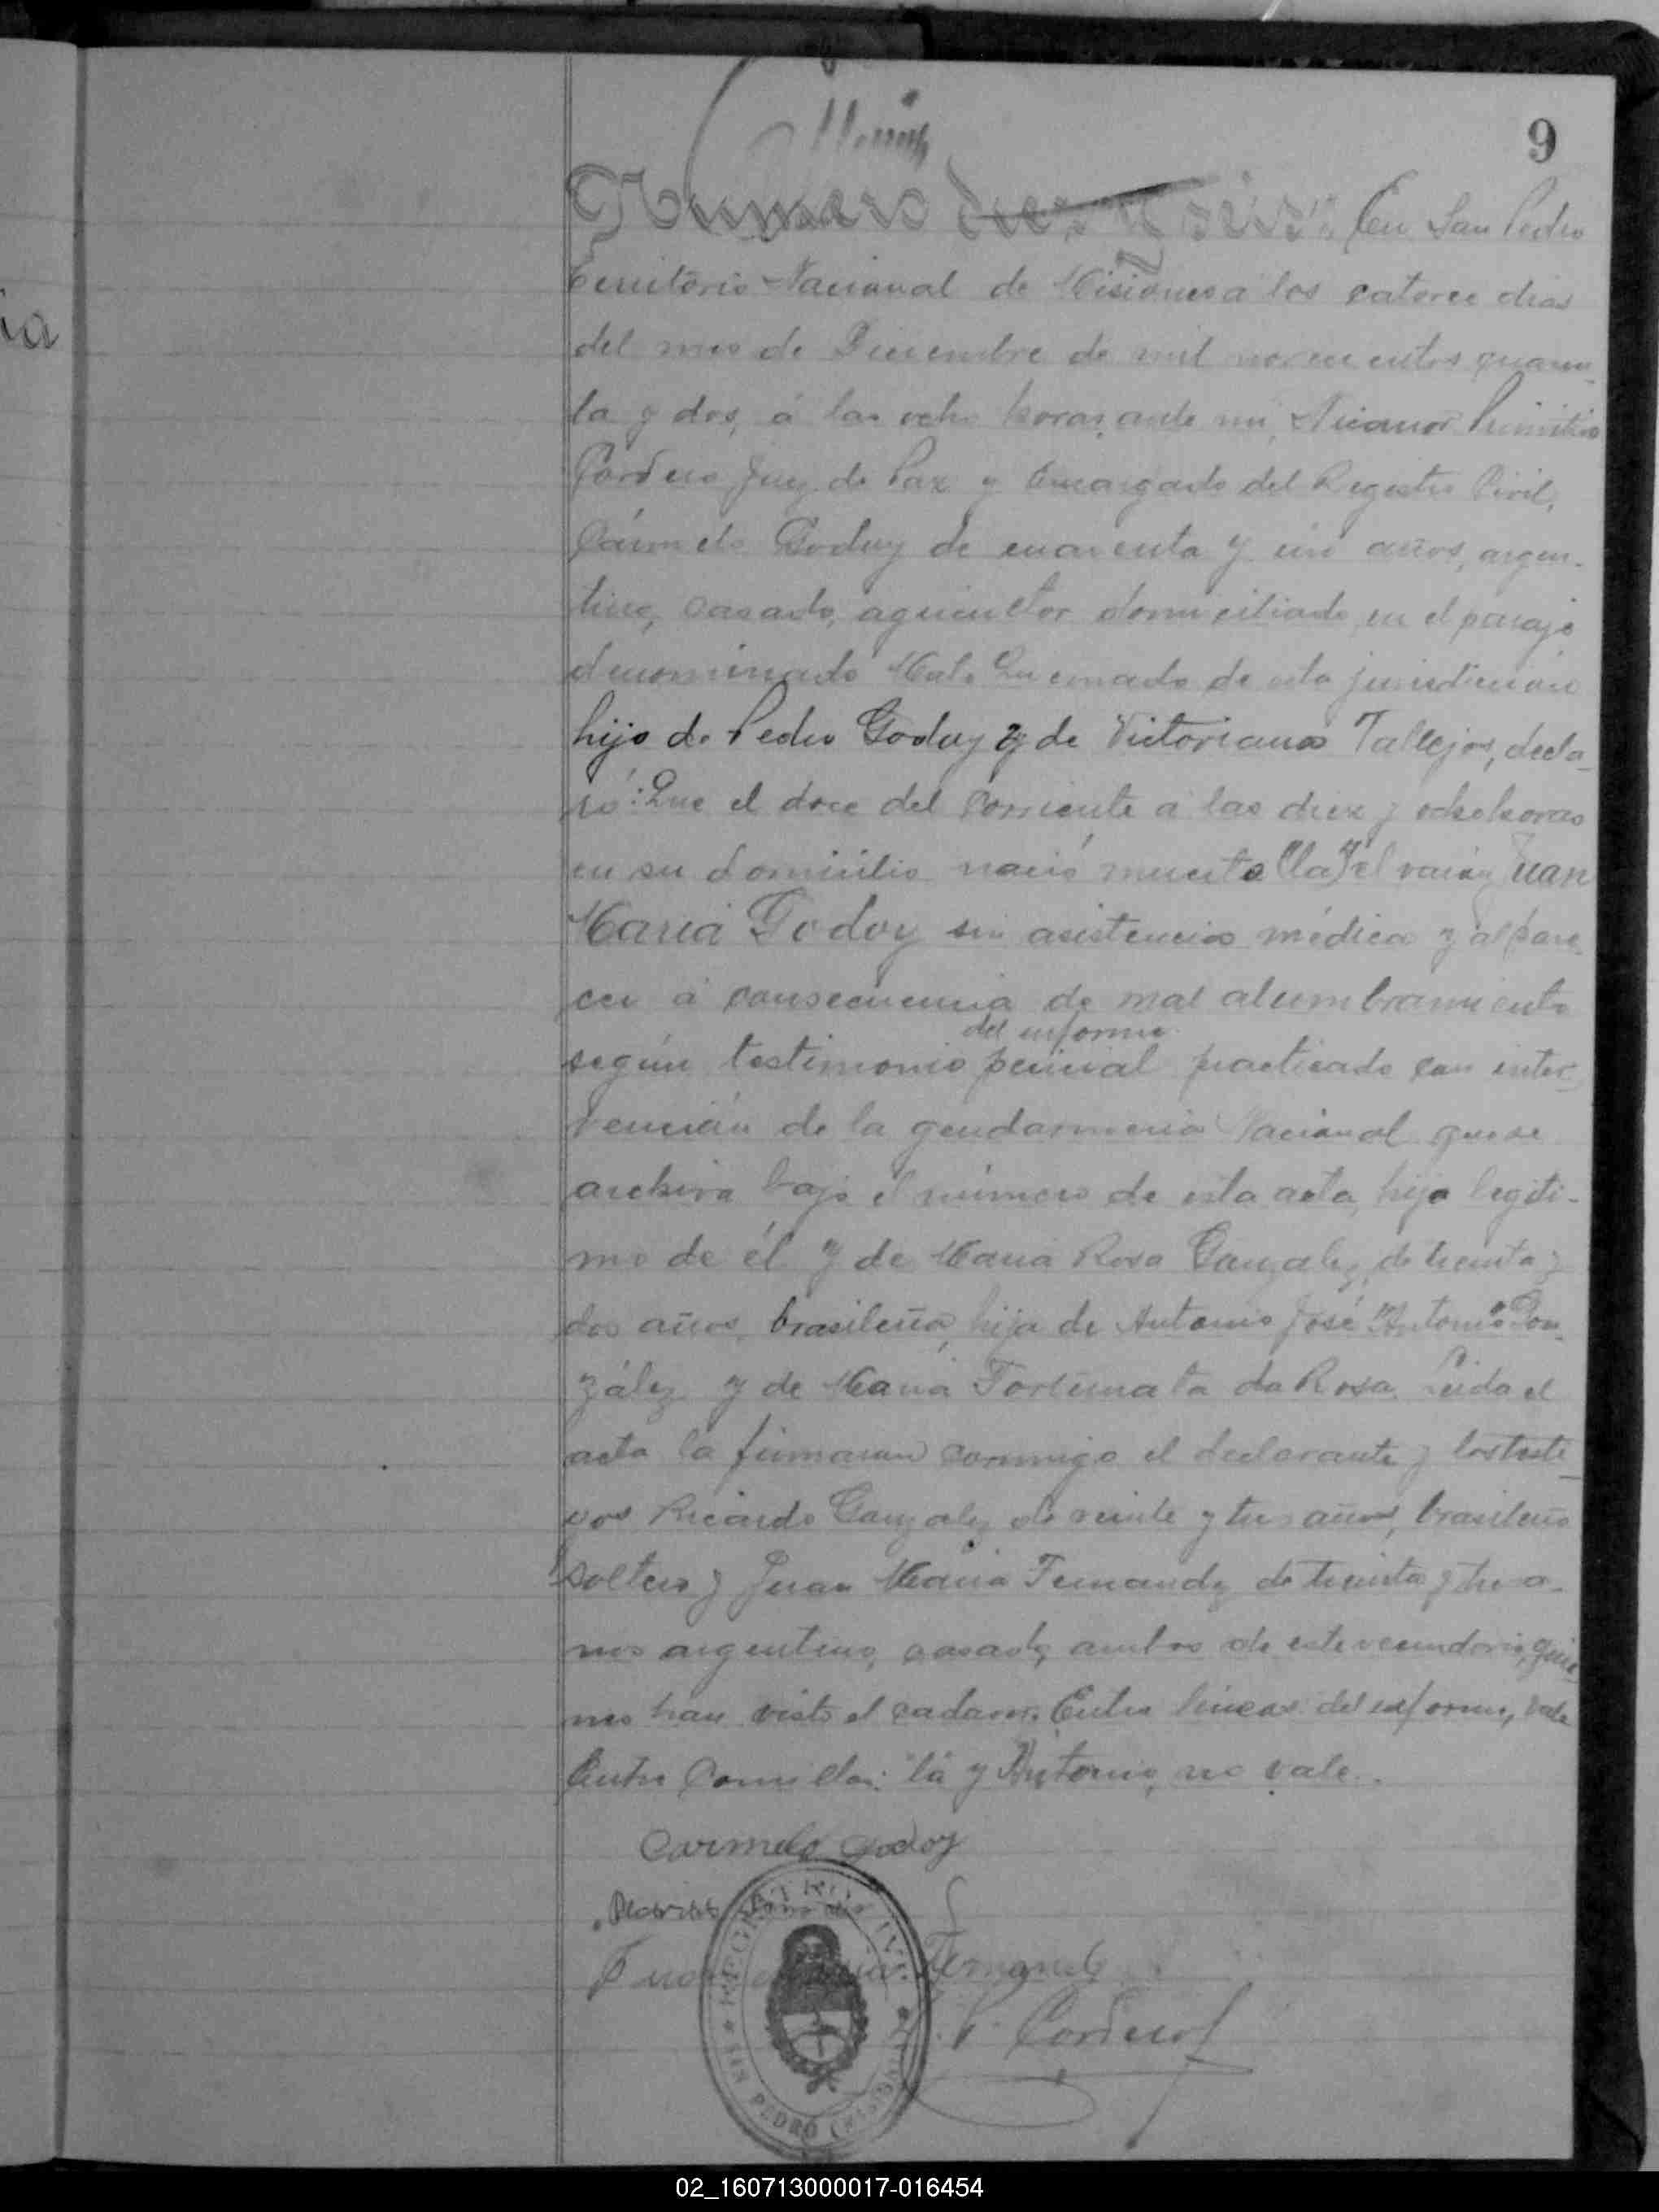 9
Numero diez y seis". En San Pedro
Territorio Nacional de Misiones a los catorce dias
del mes de Diciembre de mil novecientos quaren-
ta y dos, á las ocho horas, ante mi, Nicanor Primitivo
Cordero Juez de Paz y Encargado del Registro Civil,
Cármelo Godoy de cuarenta y un años, argen-
tino, casado, agricultor domiciliado en el paraje
denominado Mato Quemado de esta jurisdicción
hijo de Pedro Godoy y de Victoriana Vallejos, decla-
ró: Que el doce del corriente a las diez y ocho horas
en su domicilio nació muerto "(la)" el varón Juan
María Godoy sin asistencia médica y al pare-
cer á consecuencia de mal alumbramiento
del informe
según testimonio pericial practicado con inter-
vención de la gendarmeria Nacional que se
archiva bajo el número de esta acta, hijo legíti-
mo de él y de Maria Rosa Gonzalez, de treinta y
dos años, brasileña, hija de Antonio José "Antonio" Gon-
zález y de María Fortunata da Rosa. Leida el
acta la firmaron conmigo el declarante y los testi-
gos Ricardo Gonzalez de veinte y tres años, brasileño
soltero y Juan Maria Fernandez de treinta y tres a-
ños argentino, casado, ambos de este vecindario, quie-
nes han visto el cadaver. Entre lineas: del informe, vale
Entre Comillas: "la y Antonio, no vale.
Carmelo Godoy
Juan Maria Fernandez
N. P. Cordero
REGISTRO CIVIL
SAN PEDRO (MISIONES)
02_160713000017-016454